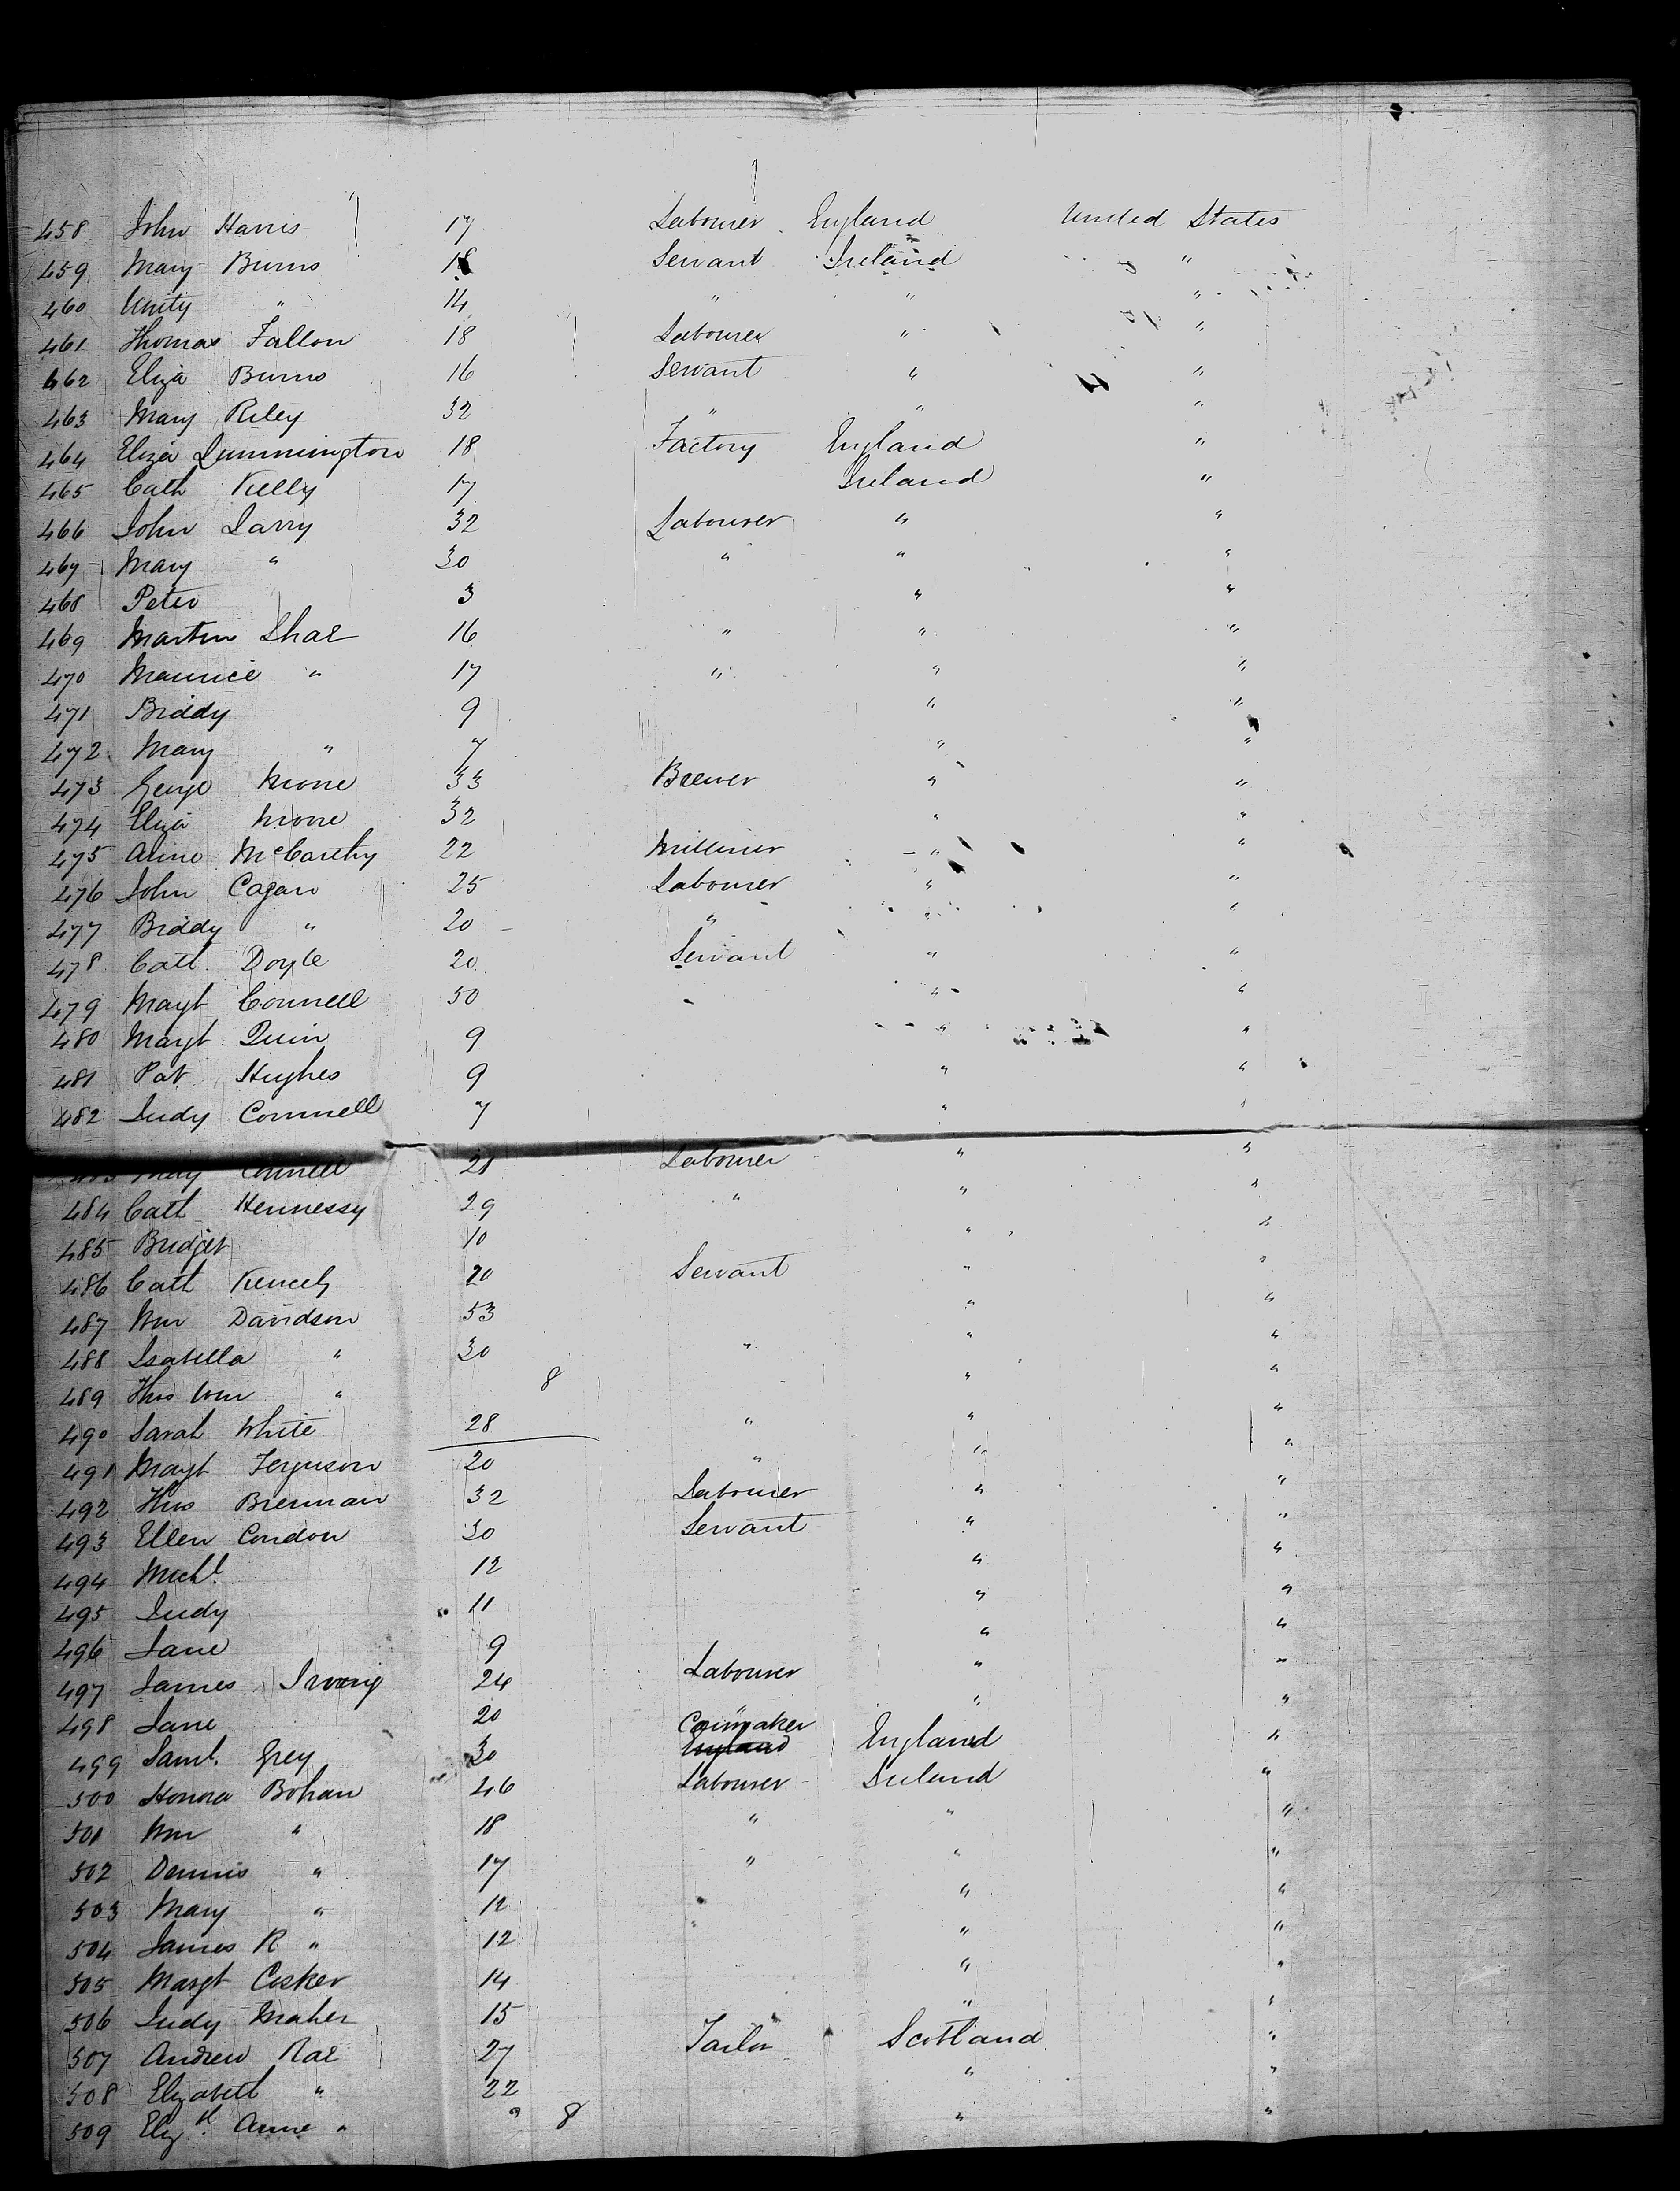 458 John Harris 17 Labourer England United States
459 Mary Burns 18 Servant Ireland "
460 Unity " 14 " " "
461 Thomas Fallon 18 Labourer " "
462 Eliza Burns 16 Servant " "
463 Mary Riley 32 " " "
464 Eliza 18 Factory England "
465 Cath Kelly 17 Ireland "
466 John Larry 32 Labourer " "
467 Mary " 30 " " "
468 Peter 3 " "
469 Martin Shae 16 " " "
470 Maurice " 17 " " "
471 Biddy 9 " "
472 Mary " 7 " "
473 George Moore 33 Brewer " "
474 Eliza Moore 32 " "
475 Anne McCarthy 22 Milliner " "
476 John Cagan 25 Labourer " "
477 Biddy " 20 " " "
478 Cath. Doyle 20 Servant " "
479 Magt Connell 50 " "
480 Magt Quin 9 " "
481 Pat Hughes 9 " "
482 Judy Connell 7 " "
Connell 21 Labourer " "
484 Cath Hennessy 29 " " "
485 Bridget 10 " "
486 Cath 20 Servant " "
487 Wm Davidson 53 " "
488 Isabella " 30 " " "
489 Thos Wm " 8 " "
490 Sarah White 28 " " "
491 Magt Ferguson 20 " " "
492 Thos Brennan 32 Labourer " "
493 Ellen Condon 30 Servant " "
494 Michl. 12 " "
495 Judy 11 " "
496 Jane 9 " "
497 James Irving 24 Labourer " "
498 Jane 20 " " "
499 Saml. Grey 30 England England "
500 Honora Bohan 46 Labourer Ireland "
501 Wm " 18 " " "
502 Dennis " 17 " " "
503 Mary " 12 " "
504 James R " 12 " "
505 Margt Cosker 14 " "
506 Judy Maher 15 " "
507 Andrew Rae 27 Tailor Scotland "
508 Elizabeth " 22 " "
509 Elizth. Anne " " 8 " "